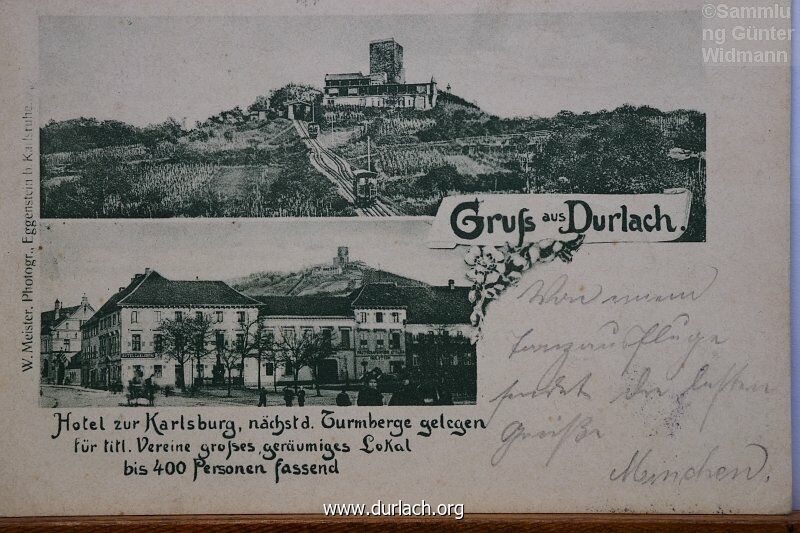 ©Sammlu
ng Günter
Widmann
W. Meister, Photogr., Eggenstein b. Karlsruhe.
Gruß aus Durlach.
Hotel zur Karlsburg, nächst d. Turmberge gelegen
für titl. Vereine großes, geräumiges Lokal
bis 400 Personen fassend
Von
Tanzausfluge
sendet die besten
Grüße
www.durlach.org